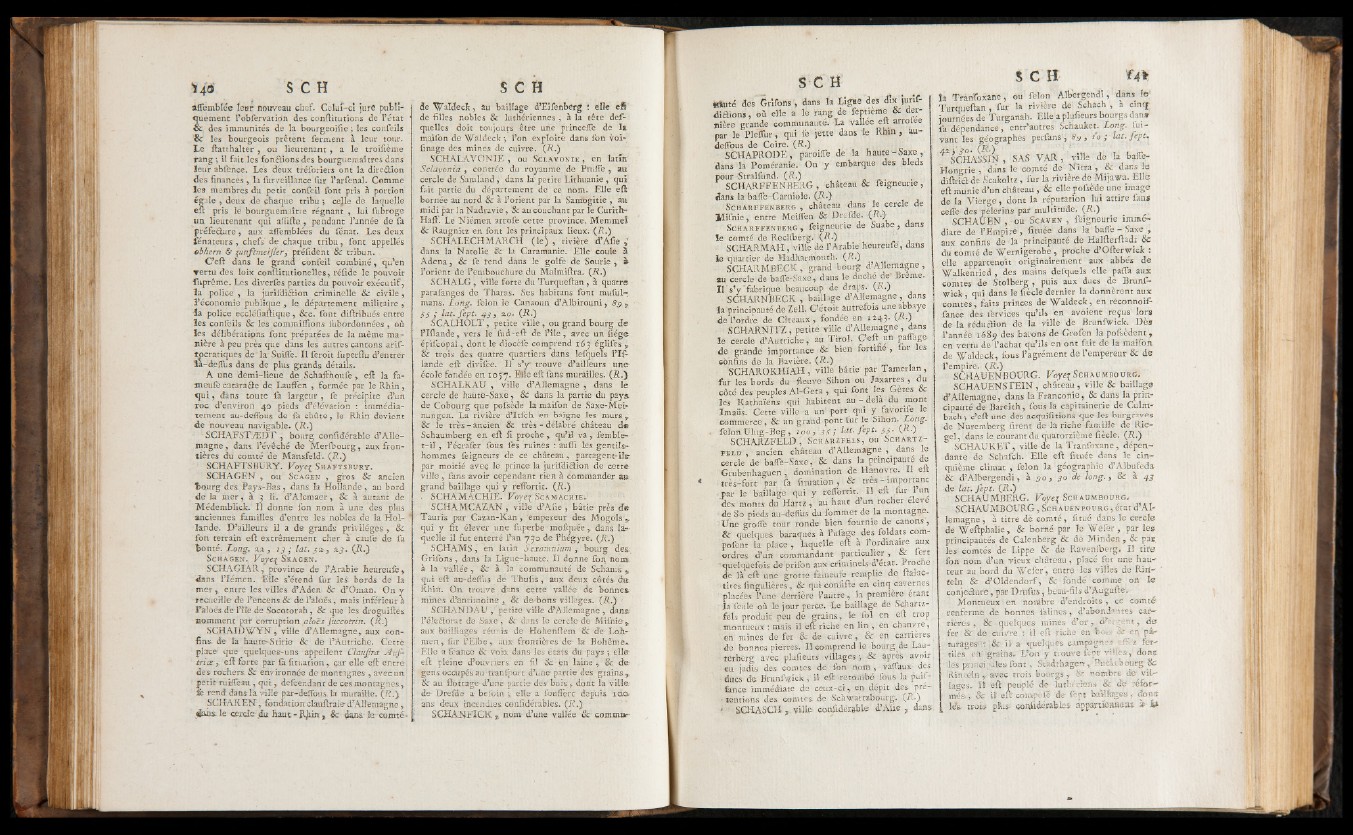 140 SCH
assemblée leur nouveau chef. Celui-ci jure publi-
quement l'observation des constitutions de l'état
& des immunités de la bourgeoisie, les conseils
& les bourgeois prêtent serment à leur tour.
Le statthalter, ou lieutenant, a le troisième
rang ; il fait les fonctions des bourguemaîtres dans
leur absence. Les deux trésoriers ont la direction
des finances, la surveillance sur l'arsenal. Comme
les membres du petit conseil sont pris à portion
égale, deux de chaque tribu ; celle de laquelle
est pris le bourguemaître régnant, lui subroge
un lieutenant qui assiste, pendant l'année de sa
préfecture, aux assemblées du sénat. Les deux
sénateurs, chefs de chaque tribu, sont appellés
obhern & zunftmeister, président & tribun.
C'est dans le grand conseil combiné, qu'en
vertu des loix constitutionelles, réside le pouvoir
suprême. Les diverses parties du pouvoir exécutif,
la police, la jurisdiction criminelle & civile,
l'économie publique, le département militaire,
la police ecclésiastique, &c. sont distribués entre
les conseils & les commissions subordonnées, où
les délibérations sont préparées de la même ma-
nière à peu près que dans les autres cantons aris-
tocratiques de la Suisse. Il seroit superflu d'entrer
là-dessus dans de plus grands détails.
A une demi-lieue de Schafshouse, est la fa-
meuse cataracte de Lauffen, formée par le Rhin,
qui, dans toute sa largeur, se précipite d'un
roc d'environ 40 pieds d'élévation : immédia-
tement au-dessous de sa chûte, le Rhin devient
de nouveau navigable. (R.)
SCHAFSTÆDT, bourg considérable d'Alle-
magne, dans l'évêché de Mersbourg, aux fron-
tières du comté de Mansfeld. (R.)
SCHAFTSBURY. Voyez SHAFTSBURY.
SCHAGEN, ou SCAGEN, gros & ancien
bourg des Pays-Bas, dans la Hollande, au bord
de la mer, à 3 li. d'Alcmaer, & à autant de
Médemblick. Il donne son nom à une des plus
anciennes familles d'entre les nobles de la Hol-
lande. D'ailleurs il a de grands privilèges, &
son terrain est extrêmement cher à cause de sa
bonté. Long. 22, 13 ; lat. 52, 23. (R.)
SCHAGEN. Voyez SKAGEN.
SCHAGIAR, province de l'Arabie heureuse,
dans l'Iémen. Elle s'étend sur les bords de la
mer, entre les villes d'Aden & d'Oman. On y
recueille de l'encens & de l'aloës, mais inférieur à
l'aloës de l'île de Socotorah, & que les droguistes
nomment par corruption aloës succotrin. (R.)
SCHAIDWYN, ville d'Allemagne, aux con-
fins de la haute-Stirie & de l'Autriche. Cette
place que quelques-uns appellent Claustra Aus-
triæ, est forte par sa situation, car elle est entre
des rochers & environnée de montagnes, avec un
petit ruisseau, qui, descendant de ces montagnes,
se rend dans la ville par-dessous la muraille. (R.)
SCHAKEN, fondation claustrale d'Allemagne,
dans le cercle du haut-Rhin, & dans le comté
SCH
de Waldeck, au bailliage d'Eisenberg : elle est
de filles nobles & luthériennes, à la tête des-
quelles doit toujours être une princesse de la
maison de Waldeck ; l'on exploite dans son voi-
sinage des mines de cuivre. (R.)
SCHALAVONIE, ou SCLAVONIE, en latin
Sclavonia, contrée du royaume de Prusse, au
cercle de Samland, dans la petite Lithuanie, qui
fait partie du département de ce nom. Elle est
bornée au nord & à l'orient par la Samogitie, au
midi par la Nadravie, & au couchant par le Curish-
Haff. Le Niémen arrose cette province. Memmel
& Raugnitz en sont les principaux lieux. (R.)
SCHALECHMARCH (le), rivière d'Asie,
dans la Natolie & la Caramanie. Elle coule à
Adena, & se rend dans le golfe de Sourie, à
l'orient de l'embouchure du Malmistra. (R.)
SCHALG, ville forte du Turquestan, à quatre
parasanges de Tharas. Ses habitans sont musul-
mans. Long. selon le Canaoun d'Albirouni, 89,
55 ; lat. sept. 43, 20. (R.)
SCALHOLT, petite ville, ou grand bourg de
l'Islande, vers le sud-est de l'île, avec un siége
épiscopal, dont le diocèse comprend 163 églises,
& trois des quatre quartiers dans lesquels l'Is-
lande est divisée. Il s'y trouve d'ailleurs une
école fondée en 1057. Elle est sans murailles. (R.)
SCHALKAU, ville d'Allemagne, dans le
cercle de haute-Saxe, & dans la partie du pays
de Cobourg que possède la maison de Saxe-Mei-
nungen. La rivière d'Itsch en baigne les murs,
& le très-ancien & très-délabré château de
Schaumberg en est si proche, qu'il va, semble-
t-il, l'écraser sous ses ruines : aussi les gentils-
hommes seigneurs de ce château, partagent-ils
par moitié avec le prince la jurisdiction de cette
ville, sans avoir cependant rien à commander au
grand bailliage qui y ressortit. (R.)
SCHAMACHIE. Voyez SCAMACHIE.
SCHAMCAZAN, ville d'Asie, bâtie près de
Tauris par Cazan-Kan, empereur des Mogols,
qui y fit élever une superbe mosquée, dans la-
quelle il fut enterré l'an 750 de l'hégyre. (R.)
SCHAMS, en latin Sexamnium, bourg des
Grisons, dans la Ligue-haute. Il donne son nom
à la vallée, & à la communauté de Schams,
qui est au-dessus de Thusis, aux deux côtés du
Rhin. On trouve dans cette vallée de bonnes
mines d'antimoine, & de bons villages. (R.)
SCHANDAU, petite ville d'Allemagne, dans
l'électorat de Saxe, & dans le cercle de Misnie,
aux bailliages réunis de Hohenstein & de Loh-
men, sur l'Elbe, aux frontières de la Bohême.
Elle a séance & voix dans les états du pays ; elle
est pleine d'ouvriers en fil & en laine, & de
gens occupés au transport d'une partie des grains,
& au flottage d'une partie des bois, dont la ville
de Dresde a besoin ; elle a souffert depuis 100
ans deux incendies considérables. (R.)
SCHANFICK, nom d'une vallée & commu-
SCH
nauté des Grisons, dans la Ligue des dix jurif-
dictions, où elle a le rang de septième & der-
nière grande communauté. La vallée est arrosée
par le Plessur, qui se jette dans le Rhin, au-
dessous de Coire. (R.)
SCHAPRODE, paroisse de la haute-Saxe,
dans la Poméranie. On y embarque des bleds
pour Stralsund. (R.)
SCHARFFENBERG, château & seigneurie,
dans la basse-Carniole. (R.)
SCHARFFENBERG, château dans le cercle de
Misnie, entre Meissen & Dresde. (R.)
SCHARFFENBERG, seigneurie de Suabe, dans
le comté de Rechberg. (R.)
SCHARMAH, ville de l'Arabie heureuse, dans
le quartier de Hadhramouth. (R.)
SCHARMBECK, grand bourg d'Allemagne,
au cercle de basse-Saxe, dans le duché de Brême.
Il s'y fabrique beaucoup de draps. (R.)
SCHARNBECK, bailliage d'Allemagne, dans
la principauté de Zell. C'étoit autrefois une abbaye
de l'ordre de Cîteaux, fondée en 1243. (R.)
SCHARNITZ, petite ville d'Allemagne, dans
le cercle d'Autriche, au Tirol. C'est un passage
de grande importance & bien fortifié, sur les
confins de la Bavière. (R.)
SCHAROKHIAH, ville bâtie par Tamerlan,
sur les bords du fleuve Sihon ou Jaxartes, du
côté des peuples Al-Geta, qui sont les Gètes &
les Kathaïens qui habitent au-delà du mont
Imaüs. Cette ville a un port qui y favorise le
commerce, & un grand pont sur le Sihon. Long.
selon Ulug-Beg, 100, 35 ; lat. sept. 55. (R.)
SCHARZFELD, SCHARZFELS, ou SCHARTZ-
FELD, ancien château d'Allemagne, dans le
cercle de basse-Saxe, & dans la principauté de
Grubenhaguen, domination de Hanovre. Il est
très-fort par sa situation, & très-important
par le bailliage qui y ressortit. Il est sur l'un
des monts du Hartz, au haut d'un rocher élevé
de 80 pieds au-dessus du sommet de la montagne.
Une grosse tour ronde bien fournie de canons,
& quelques baraques à l'usage des soldats com-
posent la place, laquelle est à l'ordinaire aux
ordres d'un commandant particulier, & sert
quelquefois de prison aux criminels d'état. Proche
de là est une grotte fameuse remplie de stalac-
tites singulières, & qui consiste en cinq cavernes
placées l'une derrière l'autre, la première étant
la seule où le jour perce. Le bailliage de Schartz-
fels produit peu de grains, le sol en est trop
montueux : mais il est riche en lin, en chanvre,
en mines de fer & de cuivre, & en carrières
de bonnes pierres. Il comprend le bourg de Lau-
terberg avec plusieurs villages ; & après avoir
eu jadis des comtes de son nom, vassaux des
ducs de Brunswick, il est retombé sous la puis-
sance immédiate de ceux-ci, en dépit des pré-
tentions des comtes de Schwartzbourg. (R.)
SCHASCH, ville considérable d'Asie, dans
SCH 141
la Tranfoxane, ou selon Albergendi, dans le
Turquestan, sur la rivière de Schach, à cinq
journées de Furganah. Elle a plusieurs bourgs dans
sa dépendance, entr'autres Schauket. Long. sui-
vant les géographes persans, 89, 10 ; lat. sept.
42, 30. (R.)
SCHASSIN, SAS VAR, ville de la basse-
Hongrie, dans le comté de Nitra, & dans le
district de Scakoltz, sur la rivière de Mijawa. Elle
est munie d'un château, & elle possède une image
de la Vierge, dont la réputation lui attire sans
cesse des pelerins par multitude. (R.)
SCHAUEN, ou SCAVEN, seigneurie immé-
diate de l'Empire, située dans la basse-Saxe,
aux confins de la principauté de Halberstadt &
du comté de Wernigerode, proche d'Osterwick :
elle appartenoit originairement aux abbés de
Walkenried, des mains desquels elle passa aux
comtes de Stolberg, puis aux ducs de Bruns-
wick, qui dans le siecle dernier la donnèrent aux
comtes, faits princes de Waldeck, en reconnois-
sance des services qu'ils en avoient reçus lors
de la réduction de la ville de Brunswick. Dès
l'année 1689 des barons de Grosen la possèdent,
en vertu de l'achat qu'ils en ont fait de la maison
de Waldeck, sous l'agrément de l'empereur & de
l'empire. (R.)
SCHAUENBOURG. Voyez SCHAUMBOURG.
SCHAUENSTEIN, château, ville & bailliage
d'Allemagne, dans la Franconie, & dans la prin-
cipauté de Bareith, sous la capitainerie de Culm-
bach ; c'est une des acquisitions que les burgraves
de Nuremberg firent de la riche famille de Rie-
gel, dans le courant du quatorzième siècle. (R.)
SCHAUKET, ville de la Tranfoxane, dépen-
dante de Schasch. Elle est située dans le cin-
quième climat, selon la géographie d'Albufeda
& d'Albergendi, à 90, 30 de long., & à 43
de lat. sept. (R.)
SCHAUMBERG. Voyez SCHAUMBOURG.
SCHAUMBOURG, SCHAUENBOURG, état d'Al-
lemagne, à titre de comté, situé dans le cercle
de Westphalie, & borné par le Weser, par les
principautés de Calenberg & de Minden, & par
les comtés de Lippe & de Ravensberg. Il tire
son nom d'un vieux château, placé sur une hau-
teur au bord du Weser, entre les villes de Rin-
teln & d'Oldendorf, & fondé comme on le
conjecture, par Drusus, beau-fils d'Auguste.
Montueux en nombre d'endroits, ce comté
renferme de bonnes salines, d'abondantes car-
rières, & quelques mines d'or, d'argent, de
fer & de cuivre : il est riche en bois & en pâ-
turages : & il a quelques campagnes assez fer-
tiles en grains. L'on y trouve sept villes, dont
les principales sont, Stadthagen, Buckebourg &
Rinteln, avec trois bourgs, & nombre de vil-
lages. Il est peuplé de luthériens & de réfor-
més, & il est composé de sept bailliages, dont
les trois plus considérables appartiennent à la